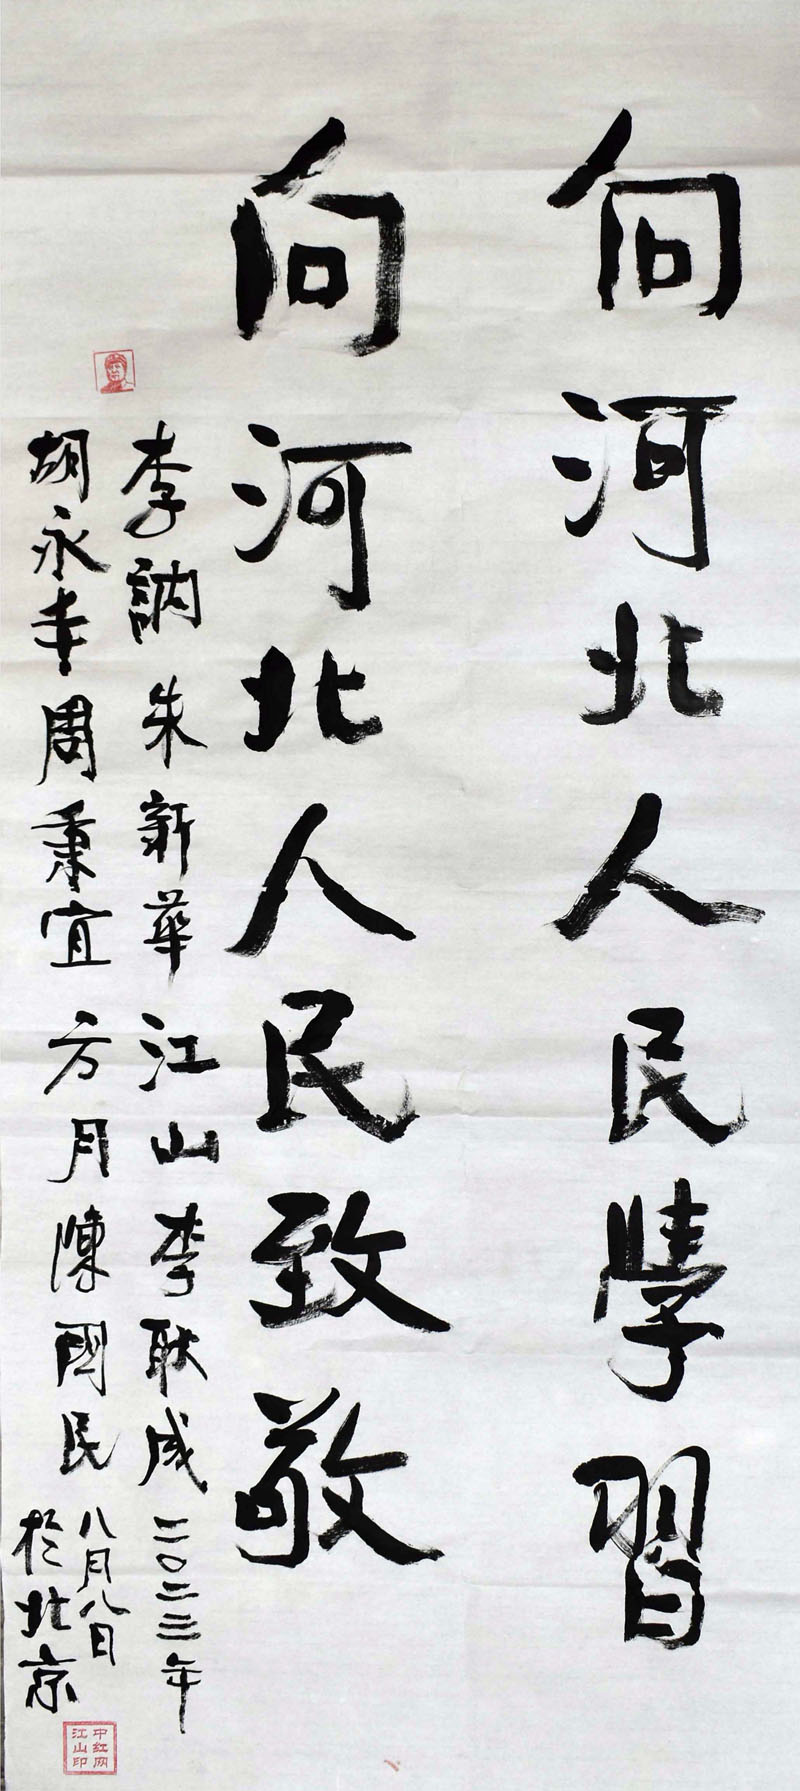 向河北人民學習
向河北人民致敬
李訥朱新華江山李耿成二〇二三年
胡永幸周秉宜方月陳國民八月八日
於北京
中红网
江山印